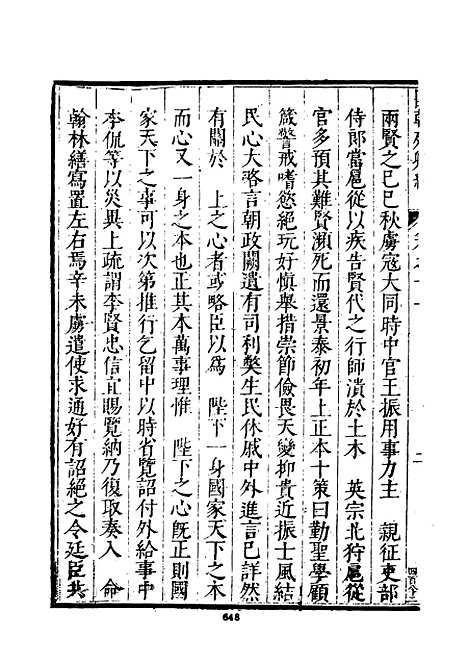 兩賢之已巳秋虜寇大同時中官王振用事力主　親征吏部
侍郎當扈從以疾告賢代之行師潰於土木　英宗北狩扈從
官多預其難賢瀕死而還景泰初年上正本十策曰勤聖學顧
箴警戒嗜慾絕玩好慎舉措崇節儉畏天變抑貴近振士風結
民心大略言朝政闕遺有司利獘生民休戚中外進言已詳然
有關於　上之心者或略臣以爲　陛下一身國家天下之本
而心又一身之本也正其本萬事理惟　陛下之心旣正則國
家天下之事可以次第推行乞留中以時省覽詔付外給事中
李侃等以災異上疏謂李賢忠信宜賜覽納乃復取奏入　命
翰林繕寫置左右焉辛未虜遣使求通好有詔絕之令廷臣共
二
648